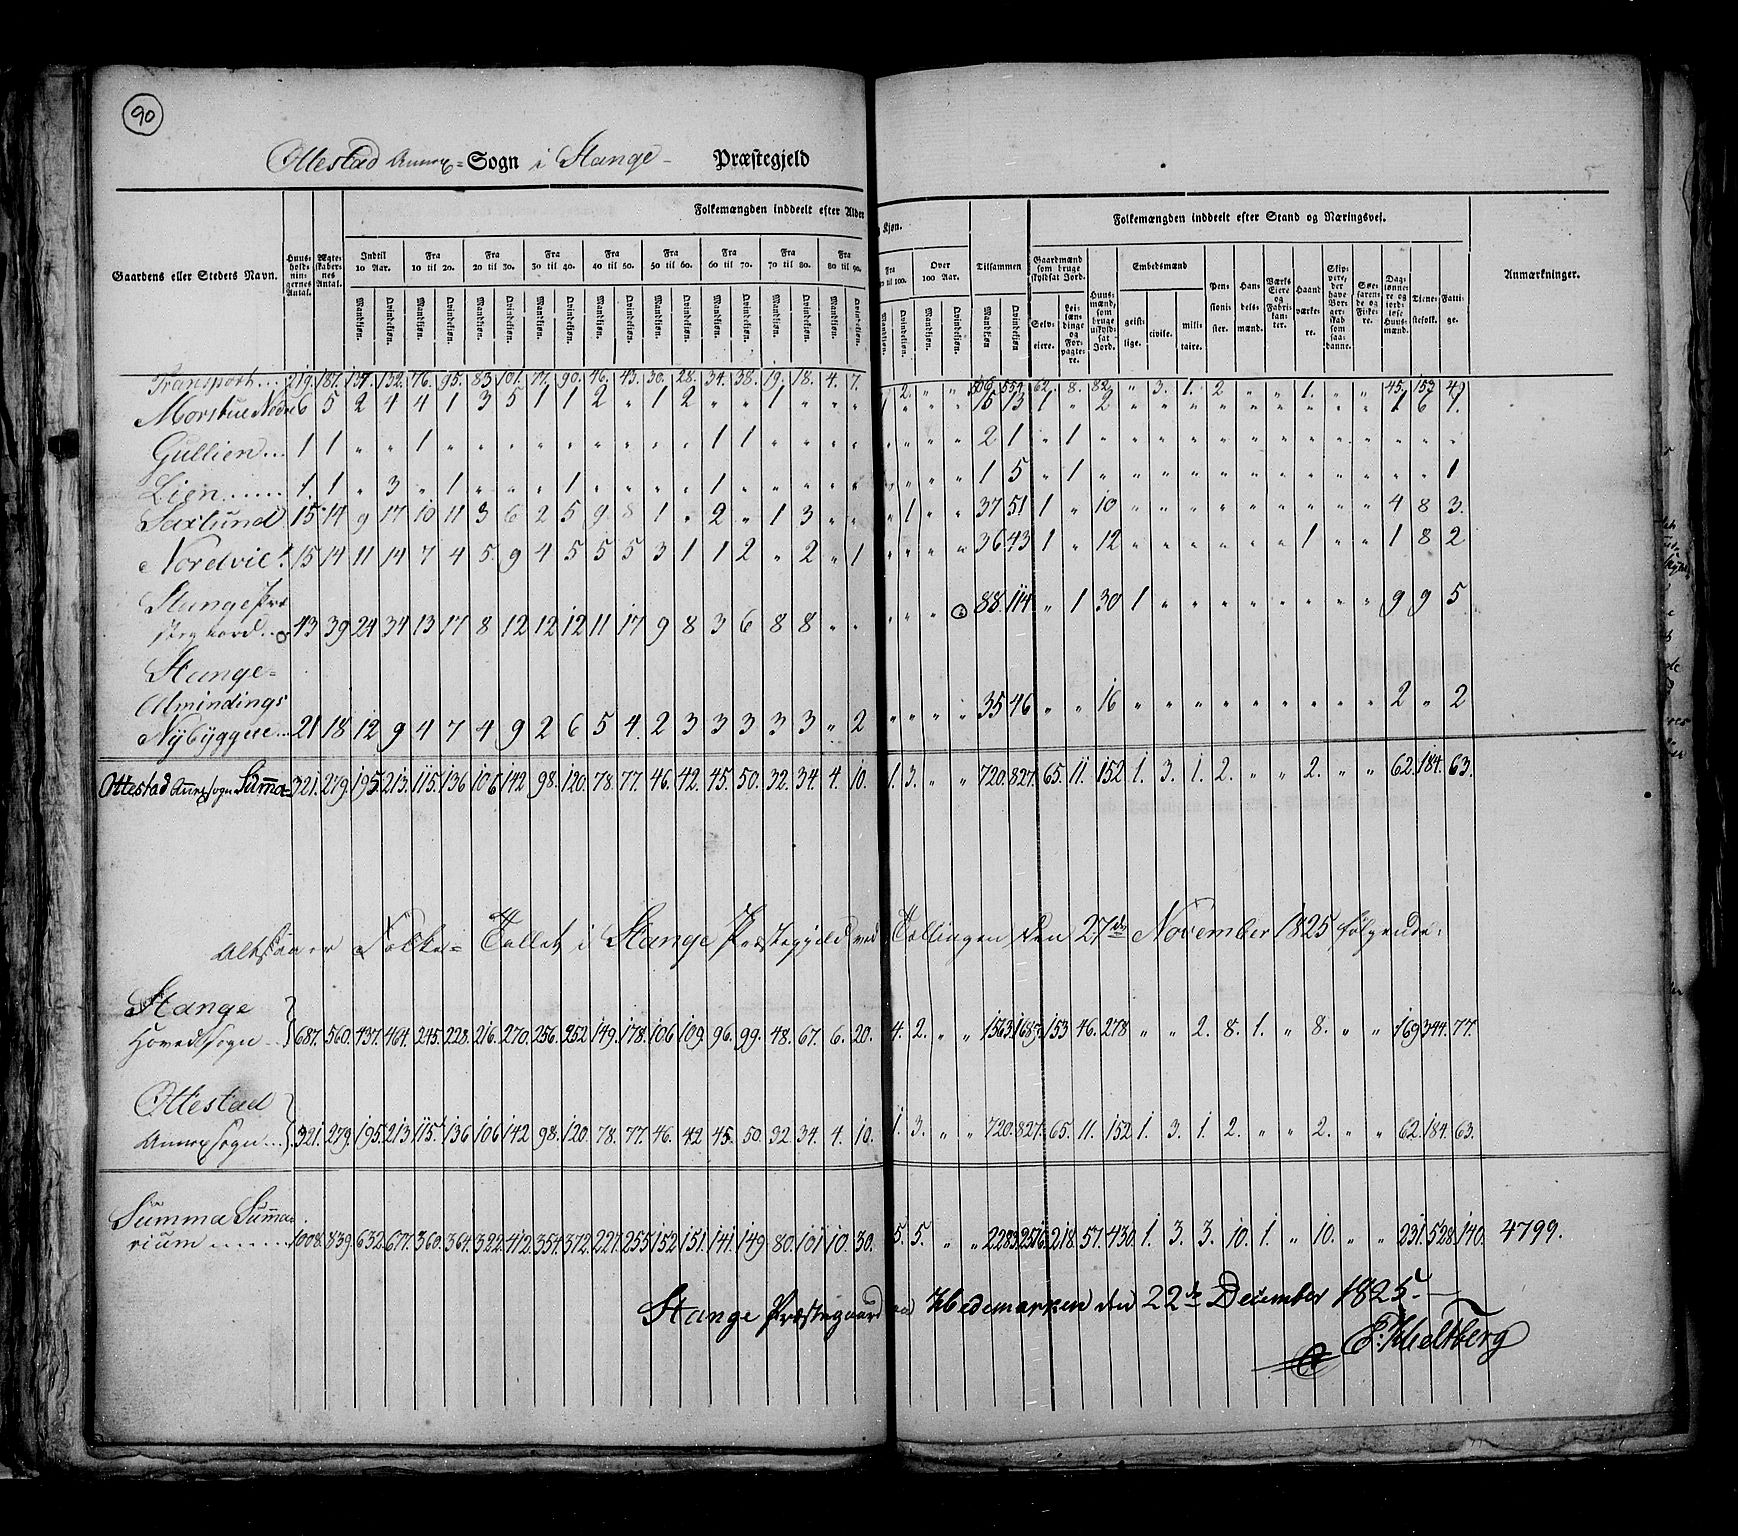 90
Ottestad Annex-Sogn i Stange- Præstegjeld
Gaardens eller Stedets Navn. Huus-holdningernes Antal. Ægteskabernes Antal. Folkemængden inddeelt efter Alder og Kjøn. Tilsammen Folkemængden inddeelt efter Stand og Næringsvej. Anmærkninger.
Indtil 10 Aar. Fra 10 til 20. Fra 20 til 30. Fra 30 til 40. Fra 40 til 50. Fra 50 til 60. Fra 60 til 70. Fra 70 til 80. Fra 80 til 90. Fra til 100. Over 100 Aar. Gaardmænd som bruge skyldsat Jord. Embedsmænd
Mandkjøn. Qvindekjøn. Mandkjøn. Qvindekjøn. Mandkjøn. Qvindekjøn. Mandkjøn. Qvindekjøn. Mandkjøn. Qvindekjøn. Mandkjøn. Qvindekjøn. Mandkjøn. Qvindekjøn. Mandkjøn. Qvindekjøn. Mandkjøn. Qvindekjøn. Mandkjøn. Qvindekjøn. Mandkjøn. Qvindekjøn. Mandkjøn Qvindekjøn. Selveiere. Leilændinge og Forpagtere. Huusmænd, som bruge uskyldsat Jord. geistlige. civile. militaire. Pensionister. Handelsmænd. Værks Eiere og Fabrikanter. Haandværkere. Skippere, der have Borgerskab som saadanne. Søefarende og Fiskere. Daglønnere og jordløse Huusmænd. Tjenestefolk. Fattige.
Transport... 219. 187. 137. 132. 76. 95. 83. 101. 77. 90. 46. 43. 30. 28. 34. 38. 19. 18. 4. 7. 2. " " 506 559 62. 8. 82 " 3. 1. 2 " " 1. " " 45. 153 49
Morstue Nedre 6 5 2 4 4 1 3 5 1 1 2 " 1 2 " " 1 " " " 1 " " " 15 13 1 " 2 " " " " " " " " " 1 6 1.
Gullien... 1 1 " " 1 " " " " " " " " " 1 1 " " " " " " " " 2 1 " 1 " " " " " " " " " " " " "
Lien...... 1 1 " 3 " 1 " " " 1 " " " " 1 " " " " " " " " " 1 5 " 1 " " " " " " " " " " " " 1
Saxlund 15 14 9 17 10 11 3 6 2 5 9 8 1 " 2 " 1 3 " " " 1 " " 37 51 1 " 10 " " " " " " " " " 4 8 3.
Nordvie 15 14 11 14 7 4 5. 9 4 5 5 5 3 1 1 2 " 2 " 1 " " " " 36 43 1 " 12 " " " " " " 1 " " 1 8 2
Stange Præ
stegaard... 43 39 24 34 13 17 8 12 12 12 11 17 9 8 3 6 8 8 " " " " " " 88. 114 " 1 30 1 " " " " " " " " 9 9 5
Stange-
Almindings
Nybyggere... 21 18 12 9 4 7 4 9 2 6 5 4. 2 3 3 3 3 3 " 2 " " " " 35 46 " " 16 " " " " " " " " " 2 " 2
Ottestad Annexsogn Summa= 321. 279. 195. 213. 115. 136 106 142 98. 120. 78. 77. 46. 42. 45. 50. 32. 34. 4. 10. 1. 3. " " 720. 827. 65. 11. 152 1. 3. 1. 2. " " 2. " " 62. 184. 63.
Altsaa er Folke-Tallet i Stange Præstegjeld ved Tællingen den 27de November 1825 følgende:
Stange
Hovedsogn 687. 560. 437. 464. 245. 228. 216. 270. 256. 252 149. 178. 106 109. 96. 99. 48. 67. 6. 20. 4. 2. " " 1563. 1689. 153 46. 278 " " 2. 8. 1. " 8. " " 169 344. 77.
Ottestad
Annexsogn... 321. 279. 195. 213 115. 136 106 142 98. 120. 78. 77. 46. 42 45. 50. 32. 34. 4. 10. 1. 3. " " 720. 827. 65. 11. 152 1. 3. 1. 2. " " 2. " " 62. 184. 63.
Summa Summa-
rium ...... 1008. 839. 632. 677. 360. 364. 322. 412. 354. 372. 227. 255 152. 151. 141. 149. 80. 101 10. 30. 5. 5. " " 2283. 2516. 218. 57. 430. 1. 3. 3. 10. 1. " 10. " " 231. 528. 140. 4799.
Stange Præstegaard paa Hedemarken den 22de December 1825.